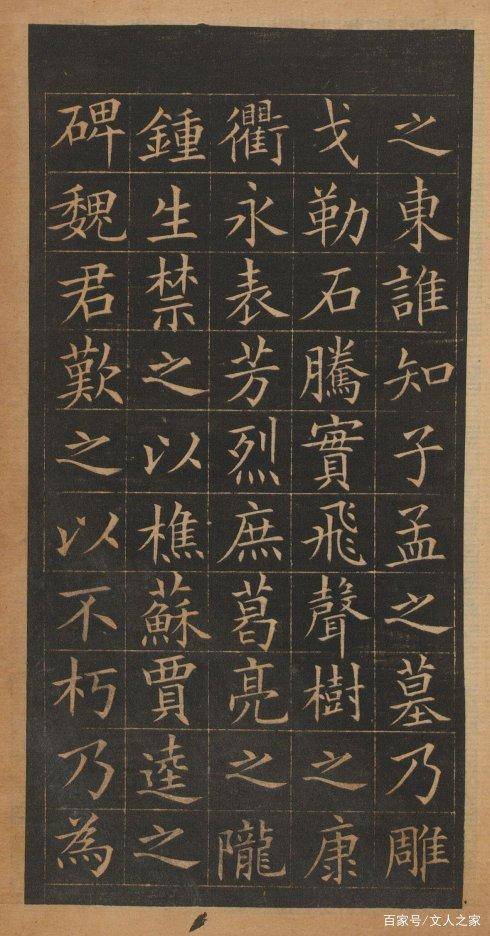 之東誰知子孟之墓乃雕
戈勒石騰實飛聲樹之康
衢永表芳烈庶葛亮之隴
鍾生禁之以樵蘇賈逵之
碑魏君歎之以不朽乃為
百家号/文人之家